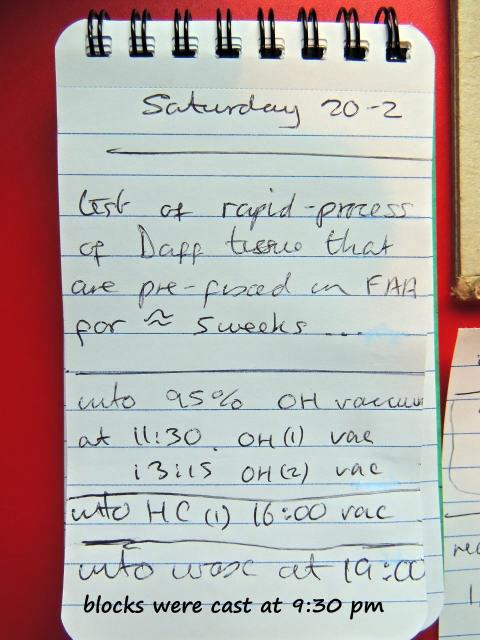 Saturday 20-2
test of rapid-process
of Daff tissue that
are pre-fixed in FAA
for ≈ 5 weeks ...
into 95% OH vaccuum
at 11:30. OH (1) vac
13:15 OH (2) vac
into HC (1) 16:00 vac
into wax at 19:00
blocks were cast at 9:30 pm